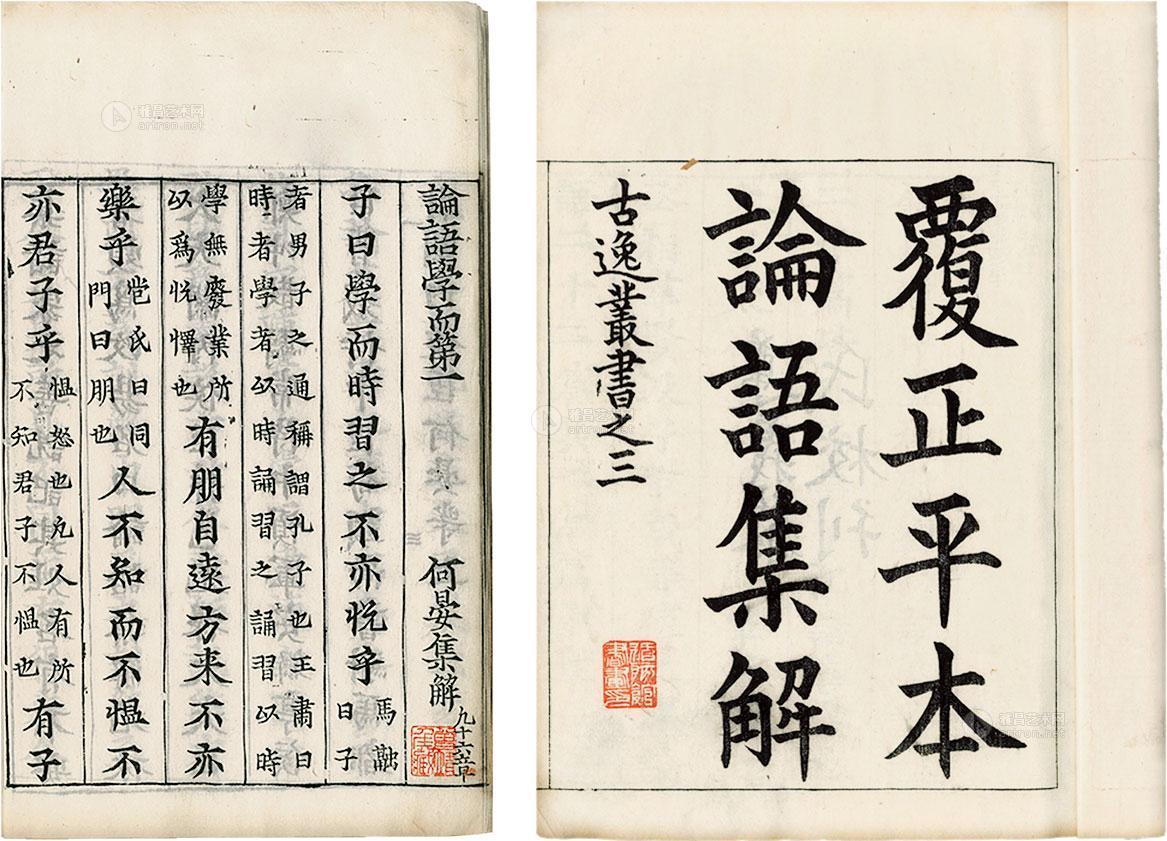 覆正平本
論語集解
古逸叢書之三
論語學而第一 何晏集解
子曰學而時習之不亦悅乎 馬融曰子
者男子之通稱謂孔子也王肅曰
時者學者以時誦習之誦習以時
學無廢業所
以爲悅懌也
有朋自遠方来不亦
樂乎
苞氏曰同
門曰朋也
人不知而不愠不
亦君子乎
愠怒也凢人有所
不知君子不愠也
有子
雅昌艺术网
artron.net
雅昌艺术网
artron.net
雅昌艺术网
artron.net